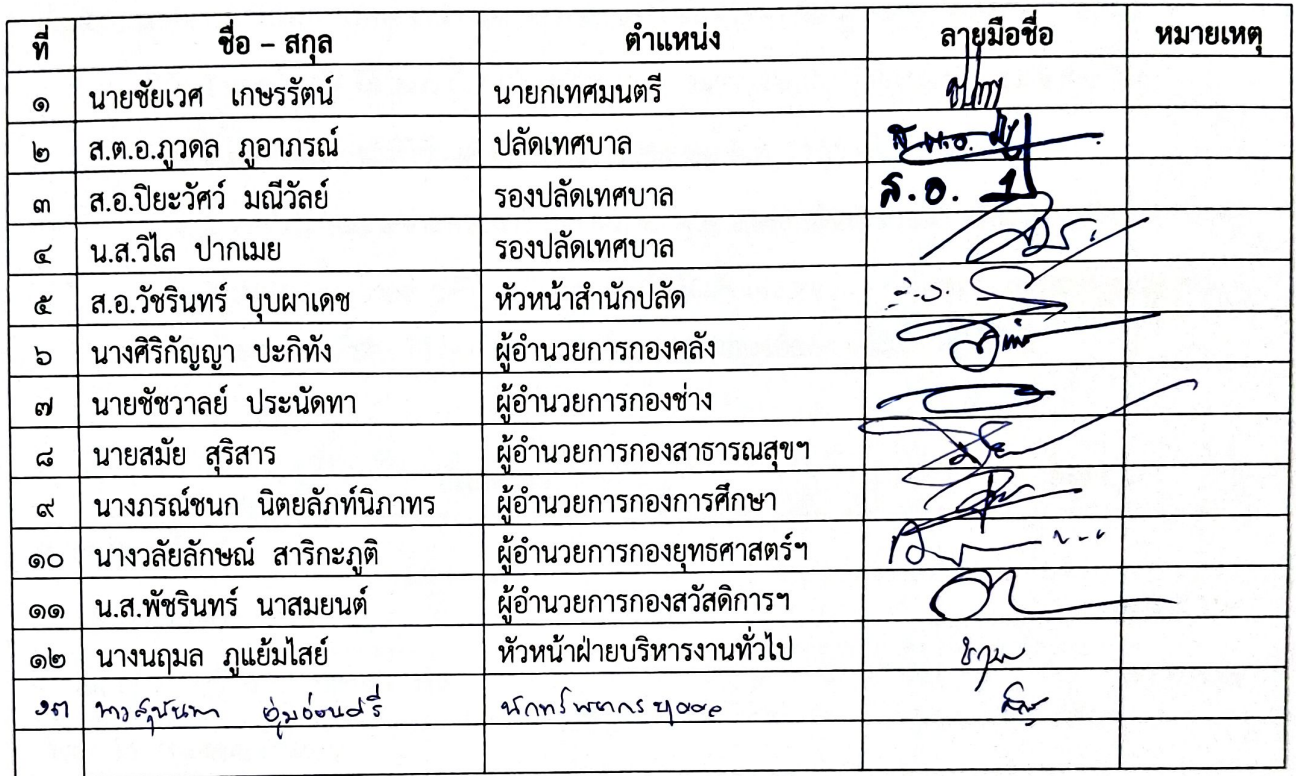 ที่ ชื่อ – สกุล ตำแหน่ง ลายมือชื่อ หมายเหตุ
๑ นายชัยเวศ เกษรรัตน์ นายกเทศมนตรี
๒ ส.ต.อ.ภูวดล ภูอาภรณ์ ปลัดเทศบาล ส.ต.อ.
๓ ส.อ.ปิยะวัศว์ มณีวัลย์ รองปลัดเทศบาล ส.อ.
๔ น.ส.วิไล ปากเมย รองปลัดเทศบาล
๕ ส.อ.วัชรินทร์ บุบผาเดช หัวหน้าสำนักปลัด ส.อ.
๖ นางศิริกัญญา ปะกิทัง ผู้อำนวยการกองคลัง
๗ นายชัชวาลย์ ประนัดทา ผู้อำนวยการกองช่าง
๘ นายสมัย สุริสาร ผู้อำนวยการกองสาธารณสุขฯ
๙ นางภรณ์ชนก นิตยลัภท์นิภาทร ผู้อำนวยการกองการศึกษา
๑๐ นางวลัยลักษณ์ สาริกะภูติ ผู้อำนวยการกองยุทธศาสตร์ฯ
๑๑ น.ส.พัชรินทร์ นาสมยนต์ ผู้อำนวยการกองสวัสดิการฯ
๑๒ นางนฤมล ภูแย้มไสย์ หัวหน้าฝ่ายบริหารงานทั่วไป
๑๓ นักทรัพยากรบุคคล